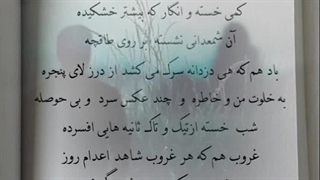 کمی خسته و انگار که بیشتر خشکیده
آن شمعدانی نشسته بر روی طاقچه
باد هم که هی دزدانه سرک می کشد از درز لای پنجره
به خلوت من و خاطره و چند عکس سرد و بی حوصله
شب خسته ازتیک و تاک ثانیه هایی افسرده
غروب هم که هر غروب شاهد اعدام روز